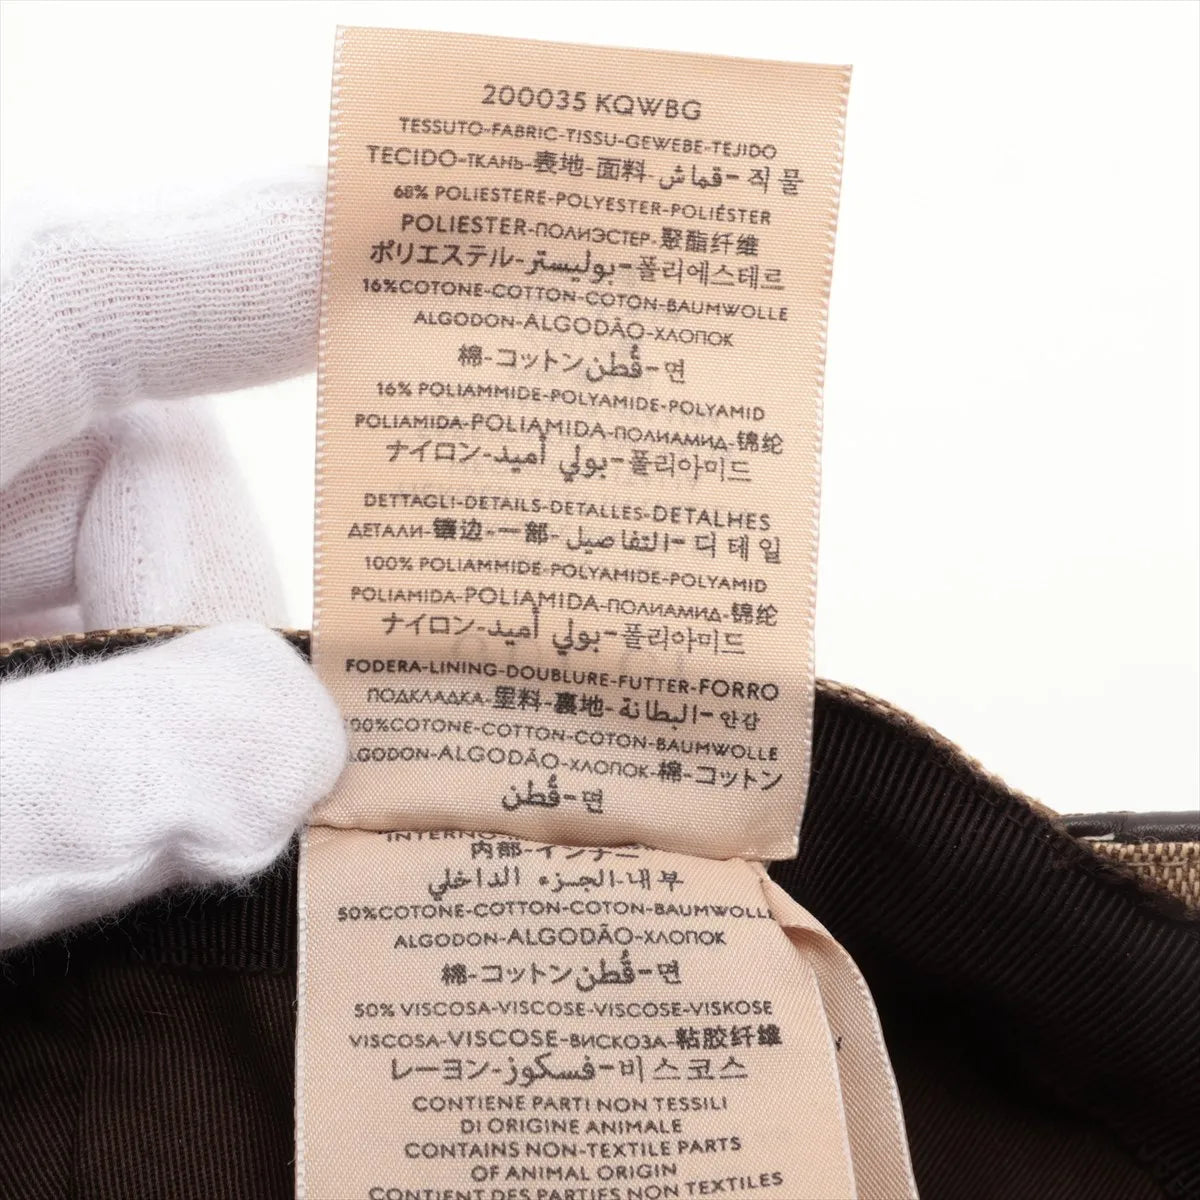 200035 KQWBG
TESSUTO-FABRIC-TISSU-GEWEBE-TEJIDO
TECIDO-ТКАНЬ-表地-面料-قماش-직물
68% POLIESTERE-POLYESTER-POLIÉSTER
POLIESTER-ПОЛИЭСТЕР-聚酯纤维
ポリエステル-بوليستر-폴리에스테르
16%COTONE-COTTON-COTON-BAUMWOLLE
ALGODON-ALGODÃO-ХЛОПОК
棉-コットン-قُطن-면
16% POLIAMMIDE-POLYAMIDE-POLYAMID
POLIAMIDA-POLIAMIDA-ПОЛИАМИД-锦纶
ナイロン-بولي أميد-폴리아미드
DETTAGLI-DETAILS-DETALLES-DETALHES
ДЕТАЛИ-镶边-一部-التفاصيل-디테일
100% POLIAMMIDE-POLYAMIDE-POLYAMID
POLIAMIDA-POLIAMIDA-ПОЛИАМИД-锦纶
ナイロン-بولي أميد-폴리아미드
FODERA-LINING-DOUBLURE-FUTTER-FORRO
ПОДКЛАДКА-里料-裏地-البطانة-안감
00%COTONE-COTTON-COTON-BAUMWOLLE
LGODON-ALGODÃO-ХЛОПОК-棉-コットン
قُطن-면
INTERNO
内部-インナー
الجزء الداخلي-내부
50%COTONE-COTTON-COTON-BAUMWOLLE
ALGODON-ALGODÃO-ХЛОПОК
棉-コットン-قُطن-면
50% VISCOSA-VISCOSE-VISCOSE-VISKOSE
VISCOSA-VISCOSE-ВИСКОЗА-粘胶纤维
レーヨン-فسكوز-비스코스
CONTIENE PARTI NON TESSILI
DI ORIGINE ANIMALE
CONTAINS NON-TEXTILE PARTS
OF ANIMAL ORIGIN
CONTIENT DES PARTIES NON TEXTILES